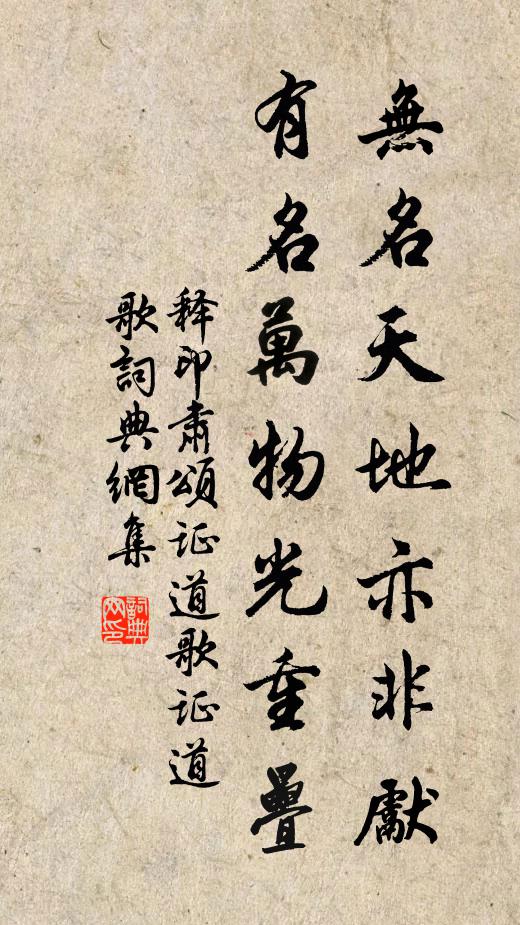 無名天地亦非獻
有名萬物光重疊
释印肅頌证道歌证道
歌詞典網集
詞典
网印